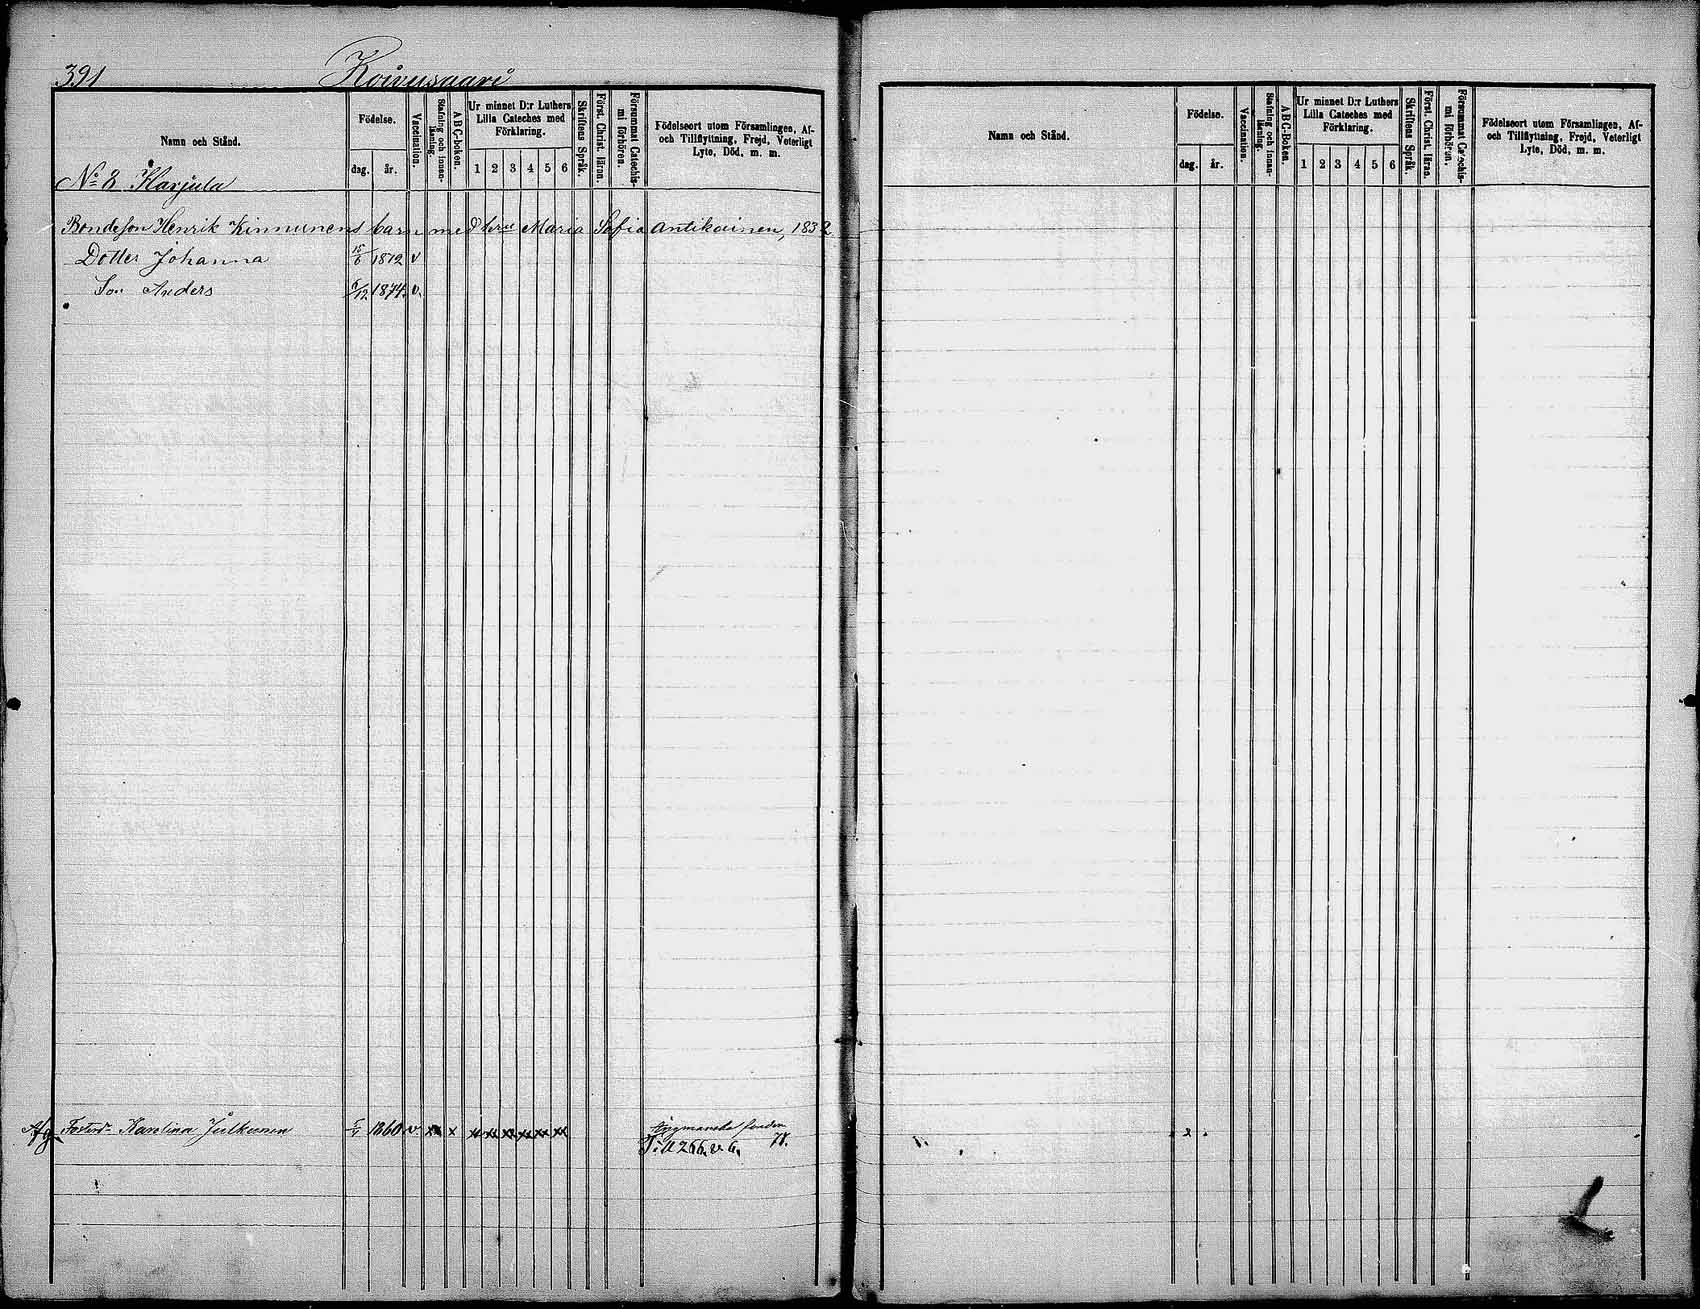 391 Koivusaari
Namn och Stånd.
Födelse.
dag. år.
Vaccination.
Stafning och innan-läsning.
A B C-boken.
Ur minnet D:r Luthers Lilla Cateches med Förklaring.
1 2 3 4 5 6
Skriftens Språk.
Först. Christ. läran.
Försummat Catechis-mi förhören.
Födelseort utom Församlingen, Af- och Tillflyttning, Frejd, Veterligt Lyte, Död, m. m.
No 8 Karjula
Bondeson Henrik Kinnunens barn med Maria Sofia Antikainen, 1832
Dotter Johanna 15/6 1872 v
Son Anders 1874 v.
Afg. Karolina Julkunen 1860 v x x x x x x x x
Till 266 78.
Namn och Stånd.
Födelse.
dag. år.
Vaccination.
Stafning och innan-läsning.
A B C-Boken.
Ur minnet D:r Luthers Lilla Cateches med Förklaring.
1 2 3 4 5 6
Skriftens Språk.
Först. Christ. läran.
Försummat Catechis-mi förhören.
Födelseort utom Församlingen, Af- och Tillflyttning, Frejd, Veterligt Lyte, Död, m. m.